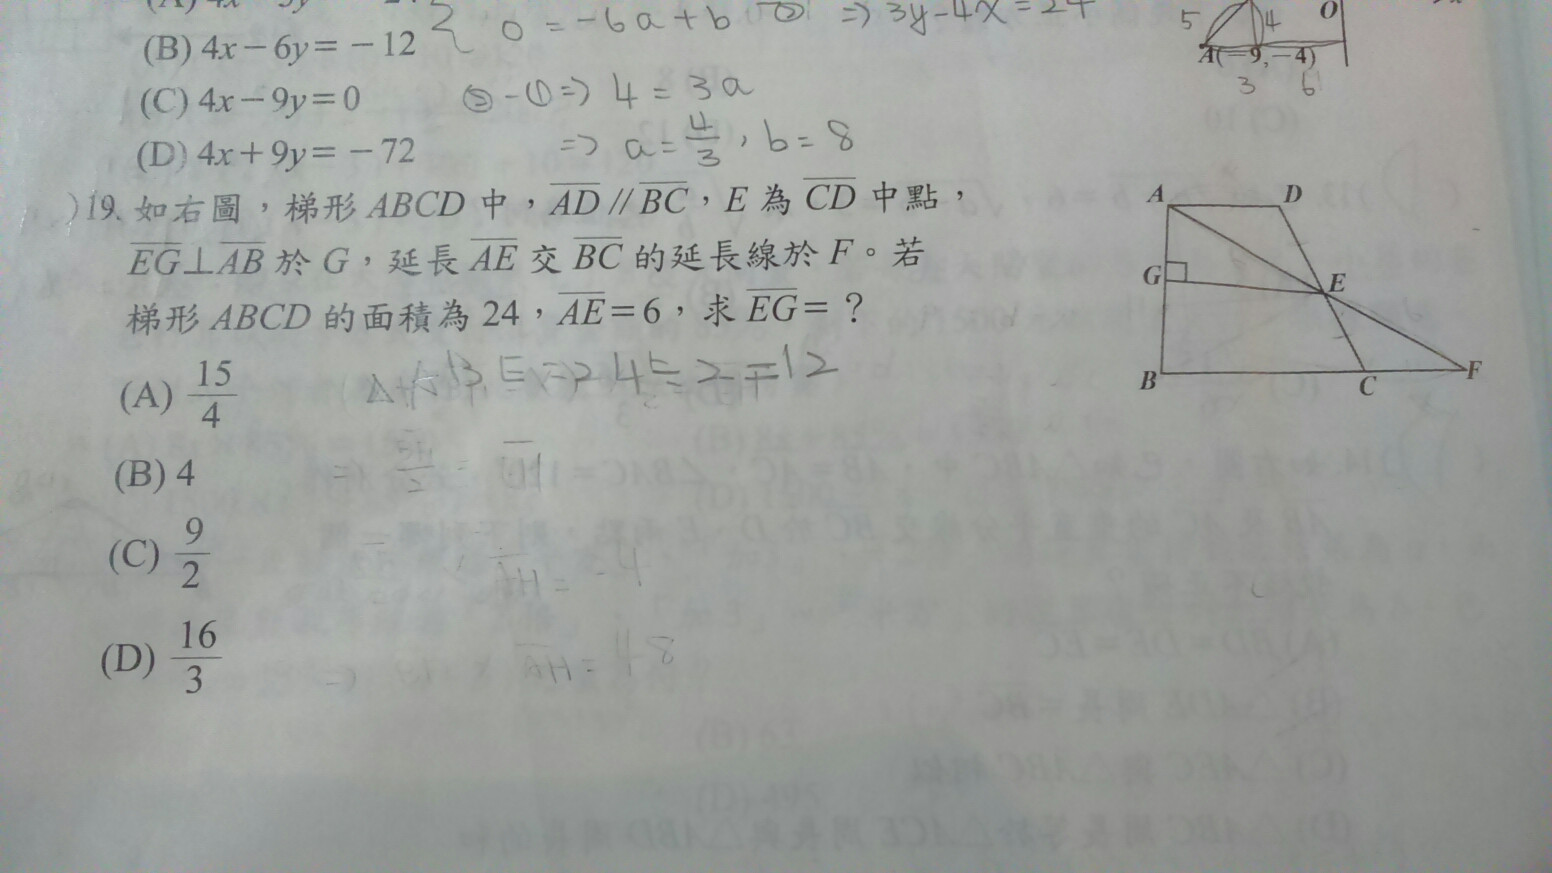 (B) 4x－6y＝－12
0 = -6a + b ② => 3y-4x = 24
(C) 4x－9y＝0
②-①=> 4 = 3a
(D) 4x＋9y＝－72
=> a = 4/3 , b = 8
5
4
O
A(－9,－4)
3
6
)19. 如右圖，梯形 ABCD 中，AD // BC，E 為 CD 中點，
EG⊥AB 於 G，延長 AE 交 BC 的延長線於 F。若
梯形 ABCD 的面積為 24，AE＝6，求 EG＝？
(A) 15/4
(B) 4
(C) 9/2
(D) 16/3
AH =
AH = 48
A
D
G
E
B
C
F